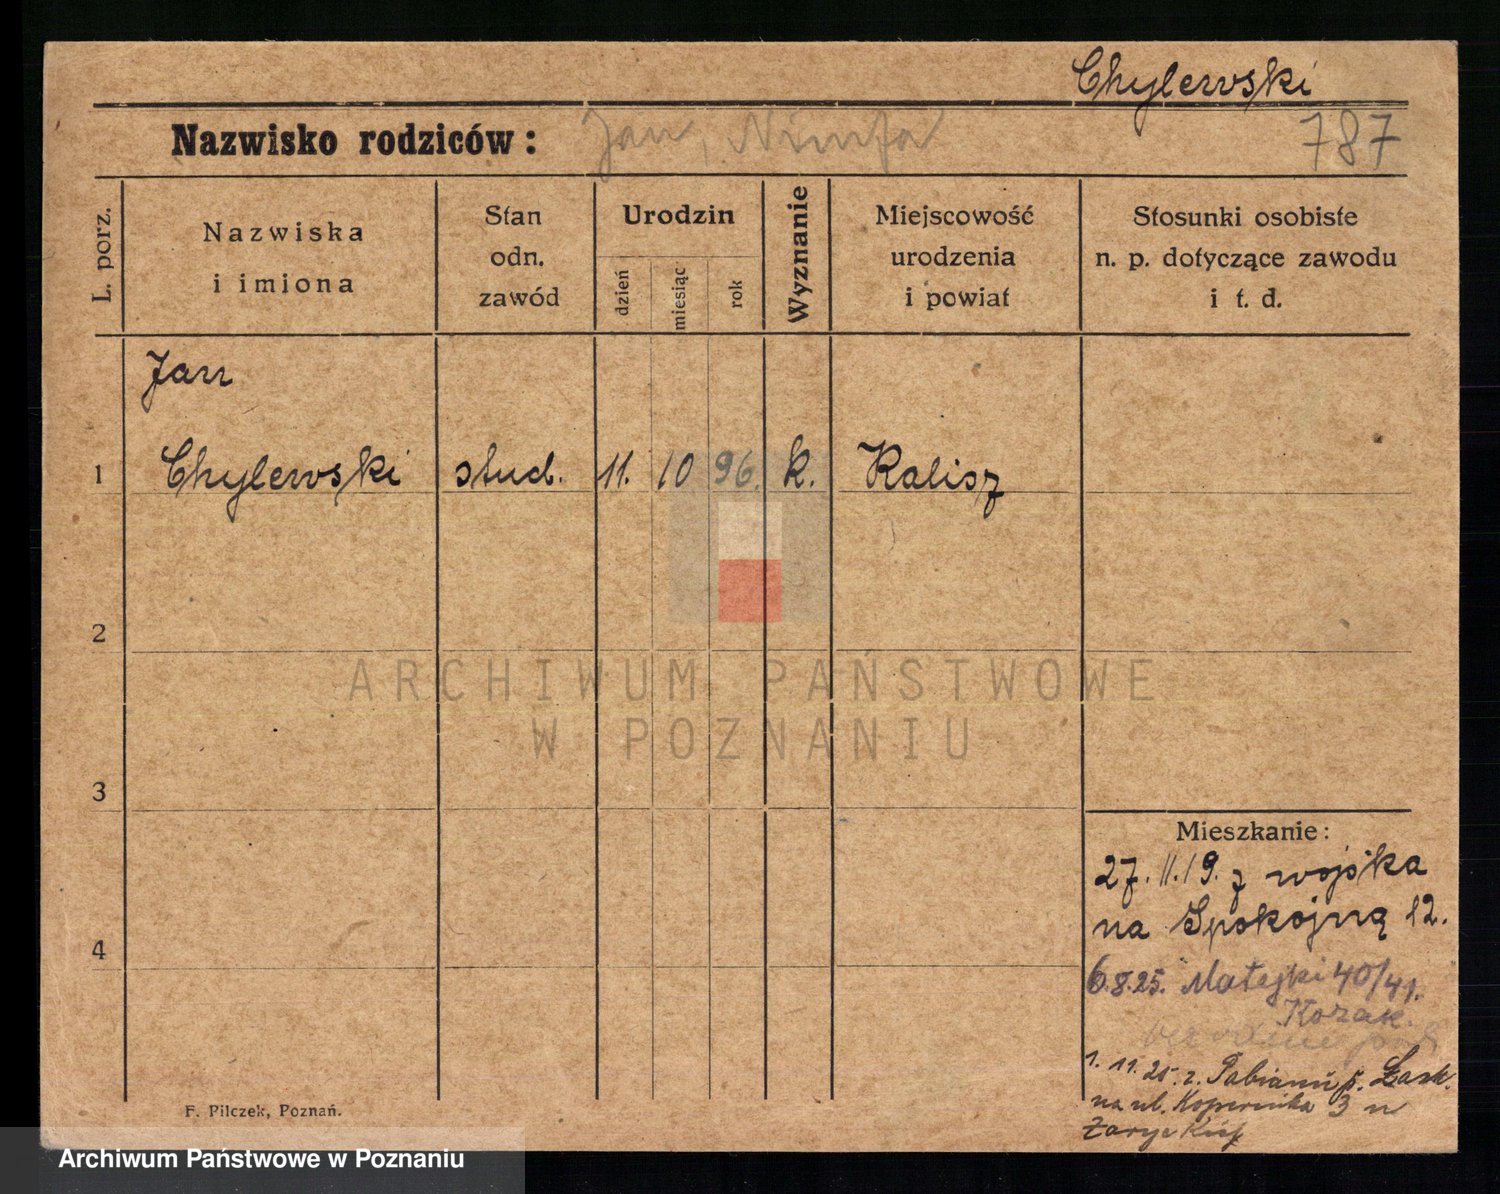 Chylewski
Nazwisko rodziców: Jan, Nimfa
787
L. porz.
Nazwiska
i imiona
Stan
odn.
zawód
Urodzin
dzień
miesiąc
rok
Wyznanie
Miejscowość
urodzenia
i powiat
Stosunki osobiste
n. p. dotyczące zawodu
i t. d.
Jan
1 Chylewski stud. 11. 10 96. k. Kalisz
2
3
4
Mieszkanie:
27. II. 19. z wojska
na Spokojną 12.
6.8.25. Matejki 40/41.
Kozak.
1. 11. 25. z. Pabianic p. Łask.
na ul. Kopernika 3 u
F. Pilczek, Poznań.
ARCHIWUM PAŃSTWOWE
W POZNANIU
Archiwum Państwowe w Poznaniu